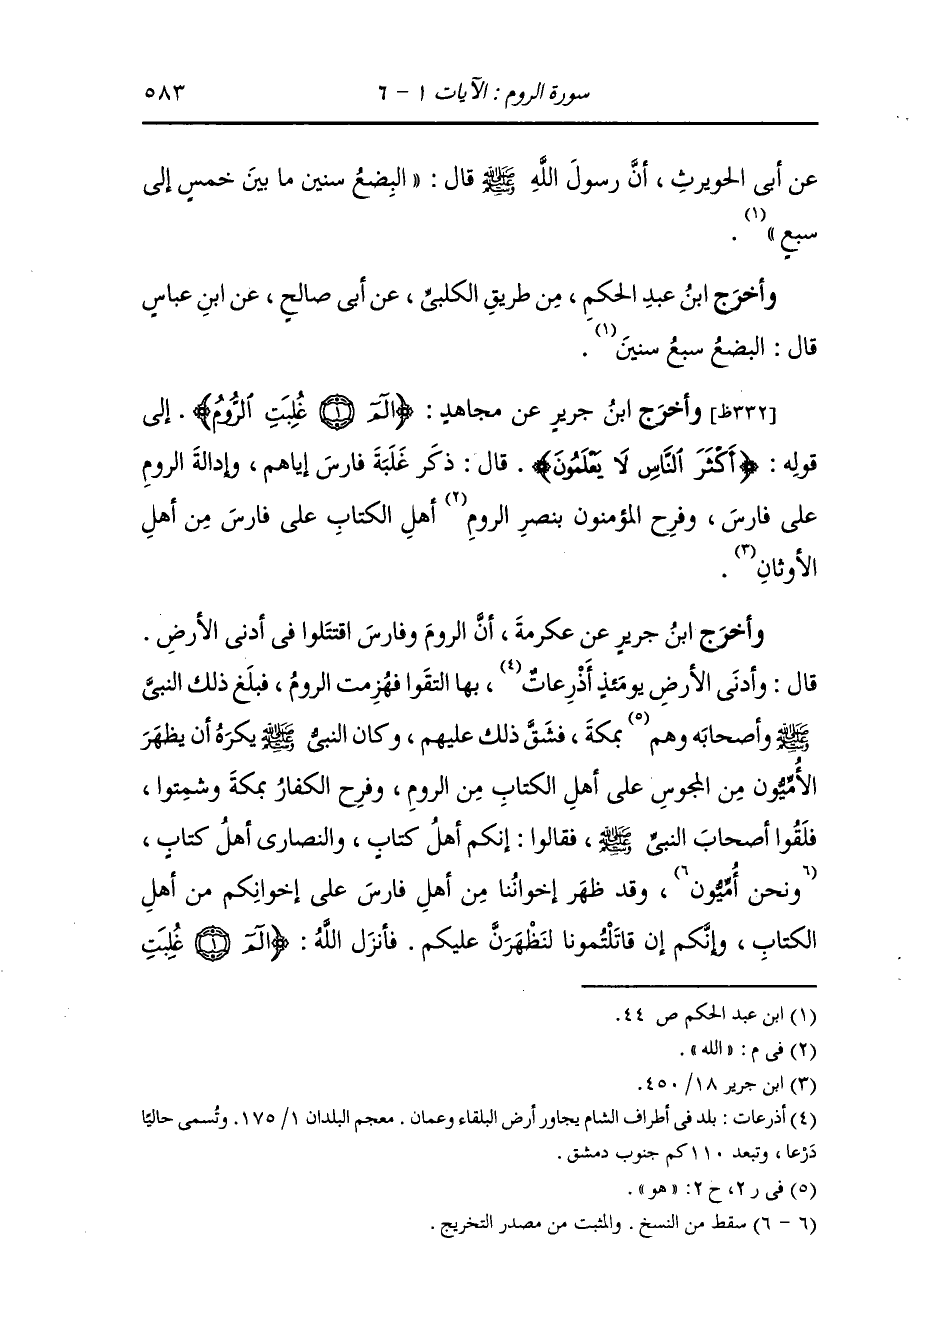 سورة الروم : الآيات ١ - ٦ ٥٨٣
عن أبى الحويرثِ ، أنَّ رسولَ اللَّهِ ﷺ قال : « البِضعُ سنين ما بينَ خمسٍ إلى
سبعٍ »(١) .
وأخرَج ابنُ عبدِ الحكمِ ، مِن طريقِ الكلبىِّ ، عن أبى صالحٍ ، عن ابنِ عباسٍ
قال : البضعُ سبعُ سنينَ(١) .
[٣٣٢ظ] وأخرَج ابنُ جريرٍ عن مجاهدٍ : ﴿الٓمٓ ۝١ غُلِبَتِ ٱلرُّومُ﴾ . إلى
قولِه : ﴿أَكْثَرَ ٱلنَّاسِ لَا يَعْلَمُونَ﴾ . قال : ذكَر غَلَبَةَ فارسَ إياهم ، وإدالةَ الرومِ
على فارسَ ، وفرِح المؤمنون بنصرِ الرومِ(٢) أهلِ الكتابِ على فارسَ مِن أهلِ
الأوثانِ(٣) .
وأخرَج ابنُ جريرٍ عن عكرمةَ ، أنَّ الرومَ وفارسَ اقتتَلوا فى أدنى الأرضِ .
قال : وأدنَى الأرضِ يومَئذٍ أَذْرِعاتٌ(٤) ، بها التقَوا فهُزِمت الرومُ ، فبلَغ ذلك النبىَّ
ﷺ وأصحابَه وهم(٥) بمكةَ ، فشَقَّ ذلك عليهم ، وكان النبىُّ ﷺ يكرَهُ أن يظهَرَ
الأُمِّيُّون مِن المجوسِ على أهلِ الكتابِ مِن الرومِ ، وفرِح الكفارُ بمكةَ وشمِتوا ،
فلَقُوا أصحابَ النبىِّ ﷺ ، فقالوا : إنكم أهلُ كتابٍ ، والنصارى أهلُ كتابٍ ،
(٦)ونحن أُمِّيُّون(٦) ، وقد ظهَر إخوانُنا مِن أهلِ فارسَ على إخوانِكم من أهلِ
الكتابِ ، وإنَّكم إن قاتَلْتُمونا لنَظْهَرَنَّ عليكم . فأنزَل اللَّهُ : ﴿الٓمٓ ۝١ غُلِبَتِ
(١) ابن عبد الحكم ص ٤٤.
(٢) فى م : « الله » .
(٣) ابن جرير ١٨/ ٤٥٠.
(٤) أذرعات : بلد فى أطراف الشام يجاور أرض البلقاء وعمان . معجم البلدان ١/ ١٧٥. وتُسمى حاليًا
دَرْعا ، وتبعد ١١٠كم جنوب دمشق .
(٥) فى ر ٢، ح ٢: « هو » .
(٦ - ٦) سقط من النسخ . والمثبت من مصدر التخريج .